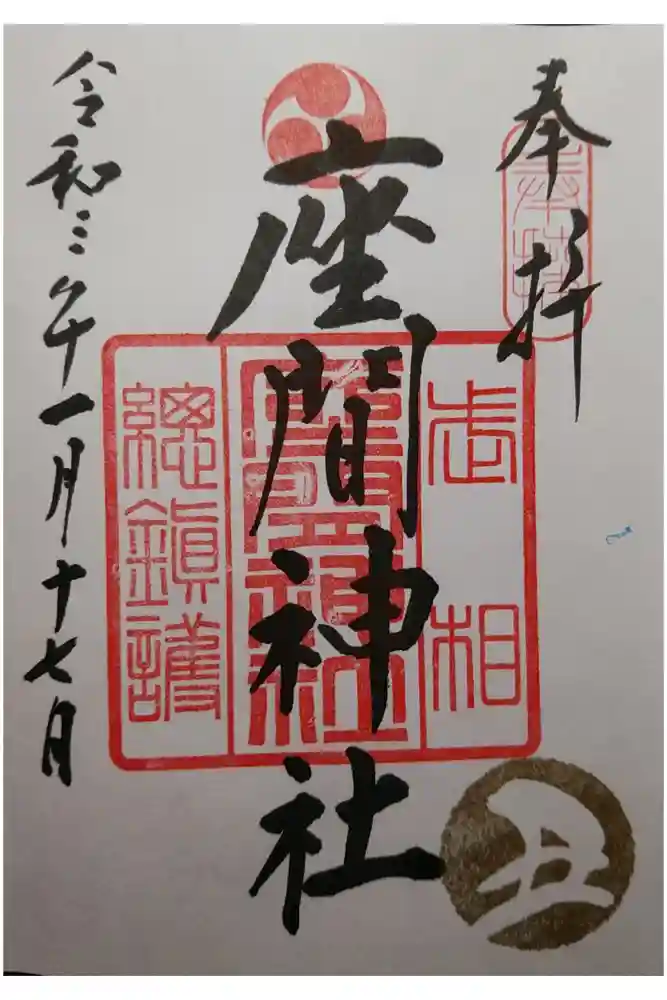 奉拝
奉拝
武相
座間神社
座間神社
總鎮護
令和三年一月十七日
丑